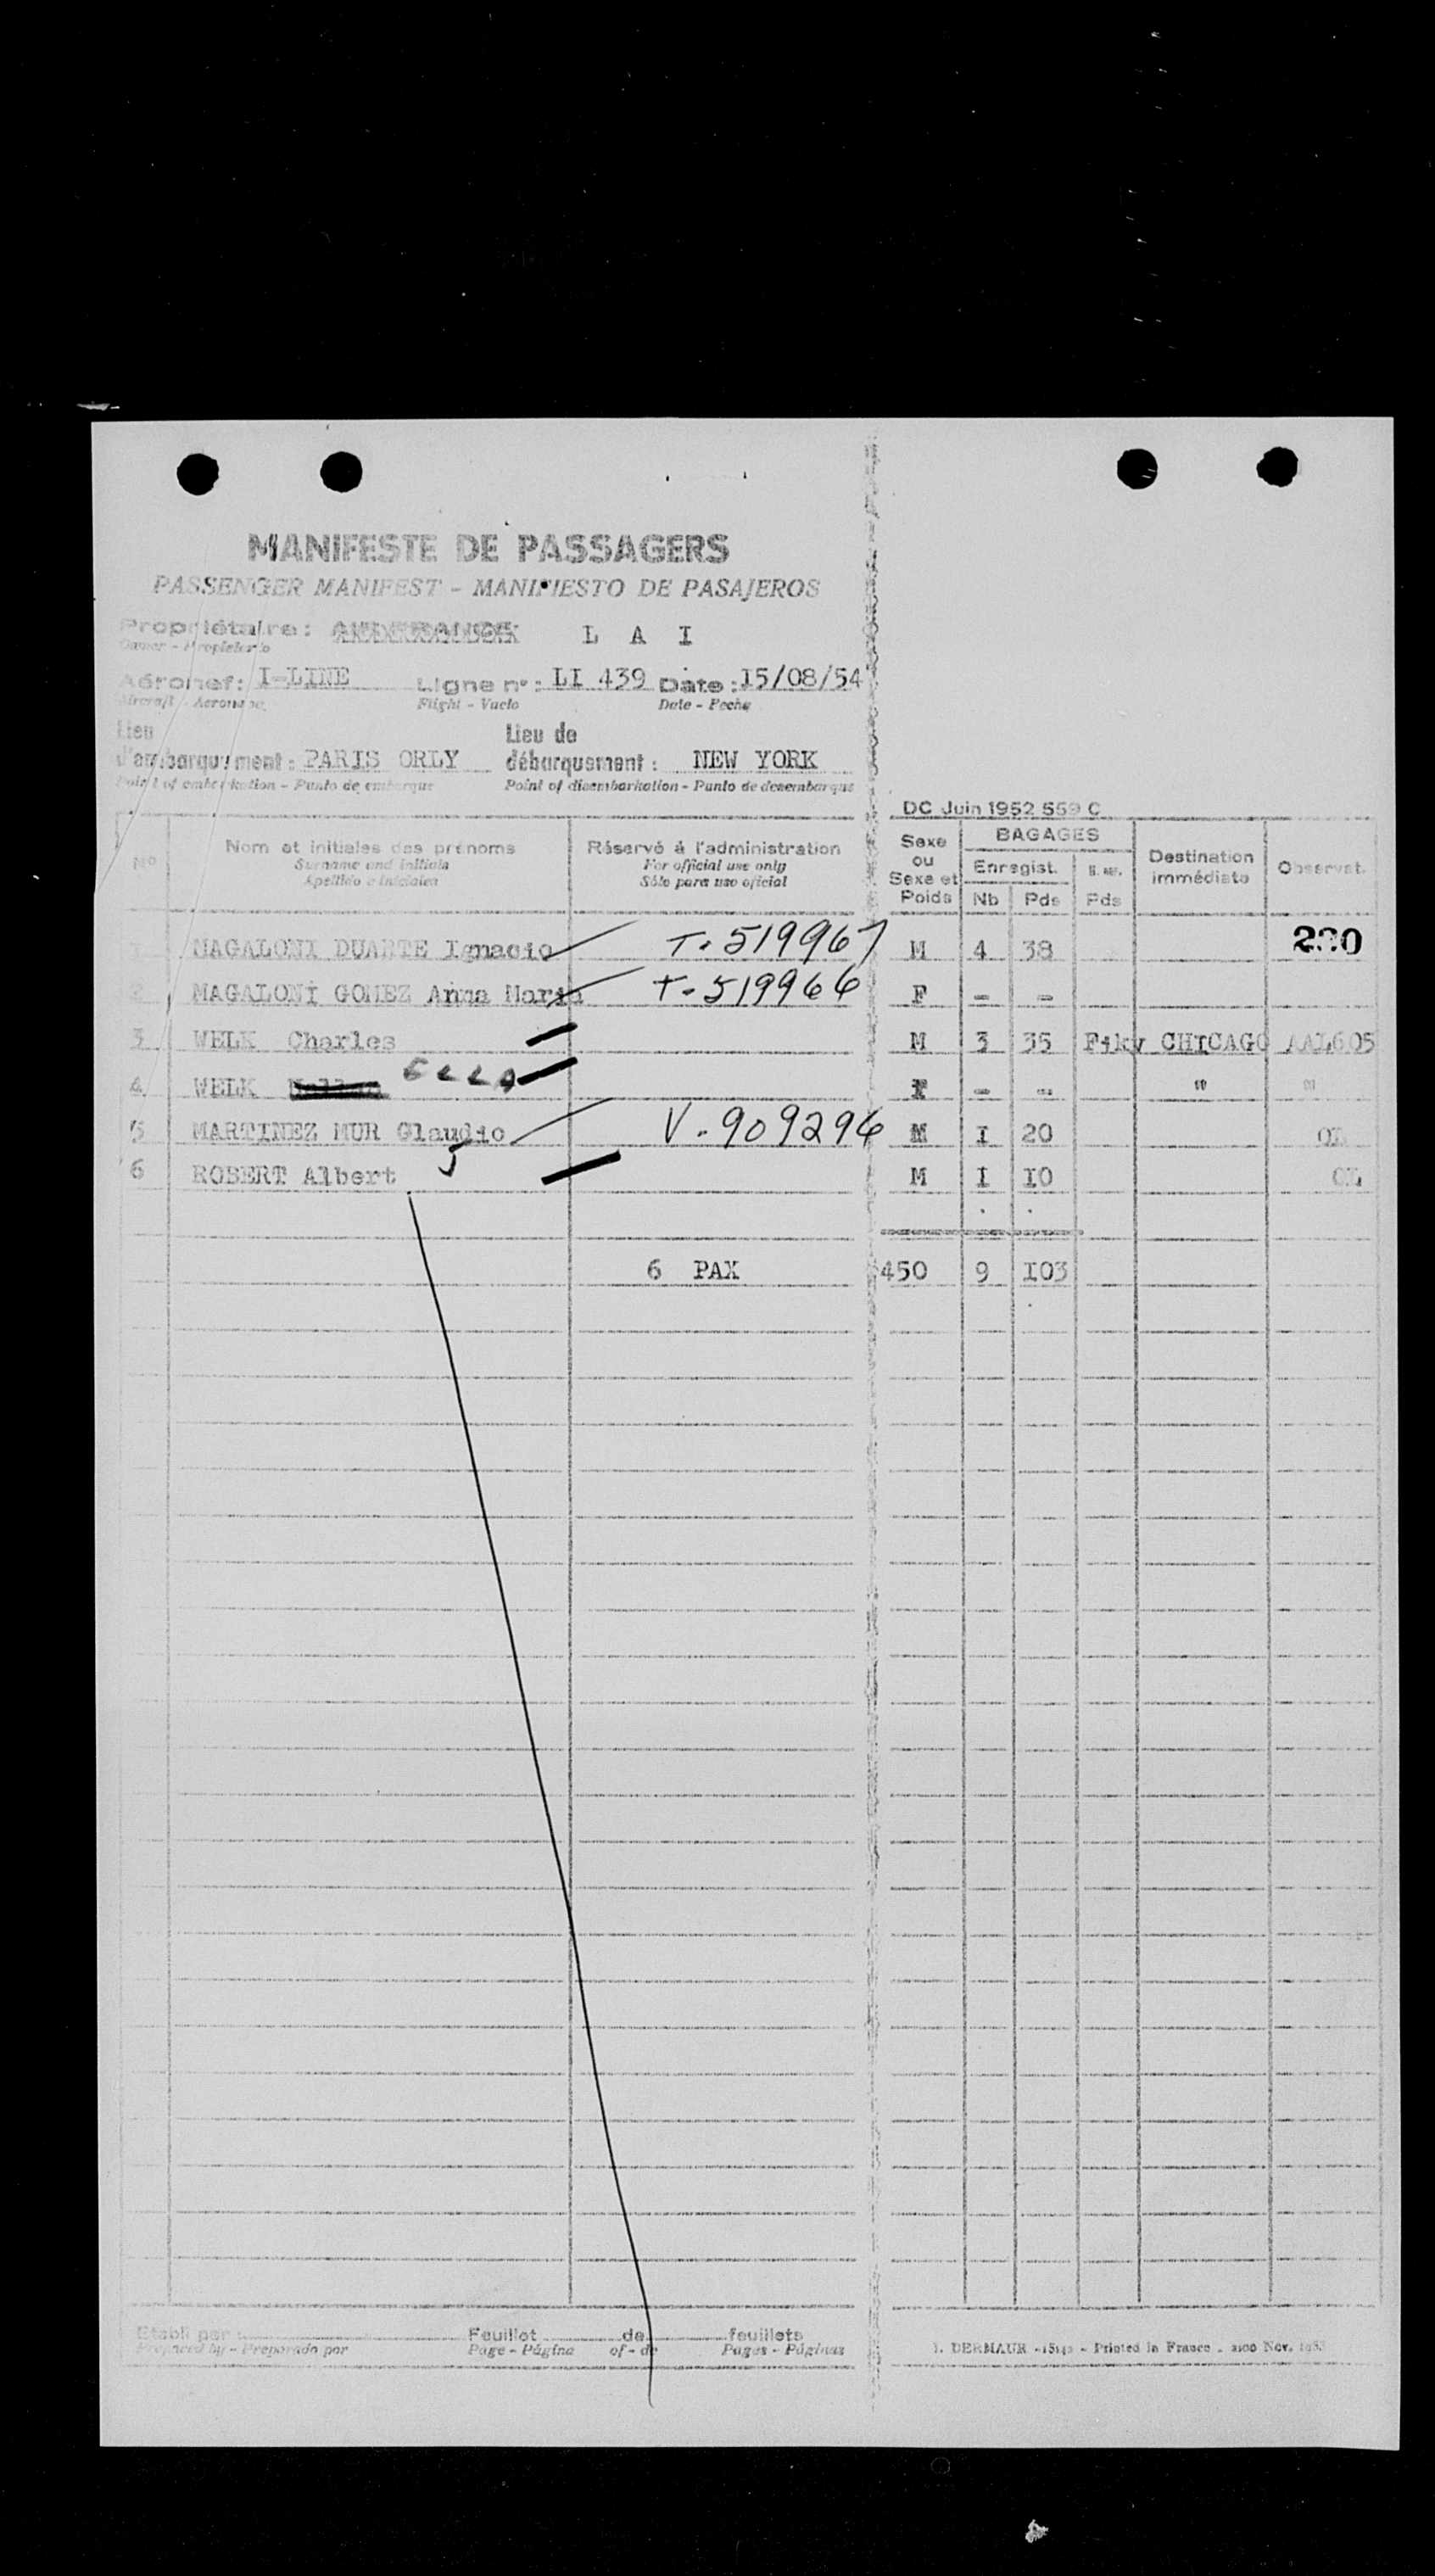 MANIFESTE DE PASSAGERS
PASSENGER MANIFEST - MANIFIESTO DE PASAJEROS
Propriétaire : L A I
Owner - Propietario
Aéronef : I-LINE Ligne n° : LI 439 Date : I5/08/54
Aircraft - Aeronave Flight - Vuelo Date - Fecha
Lieu d'embarquement : PARIS ORLY Lieu de débarquement : NEW YORK
Point of embarkation - Punto de embarque Point of disembarkation - Punto de desembarque
DC Juin 1952 559 C
N° Nom et initiales des prénoms Réservé à l'administration Sexe ou Sexe et Poids BAGAGES Destination immédiate Observat.
Surname and initials For official use only Enregist.
Apellido e iniciales Sólo para uso oficial Nb Pds Pds
MAGALONI DUARTE Ignacio T. 519967 M 4 38
2 MAGALONI GOMEZ Anna Maria T- 519966 F - -
3 WELK Charles M 3 35 CHICAGO AAL605
4 WELK ELLA F - - " "
5 MARTINEZ MUR Glaudio V. 909296 M I 20
6 ROBERT Albert J M I I0
6 PAX 450 9 I03
Etabli par Feuillet de feuillets
Prepared by - Preparado por Page - Página of - de Pages - Páginas
DERMAUR - Printed in France